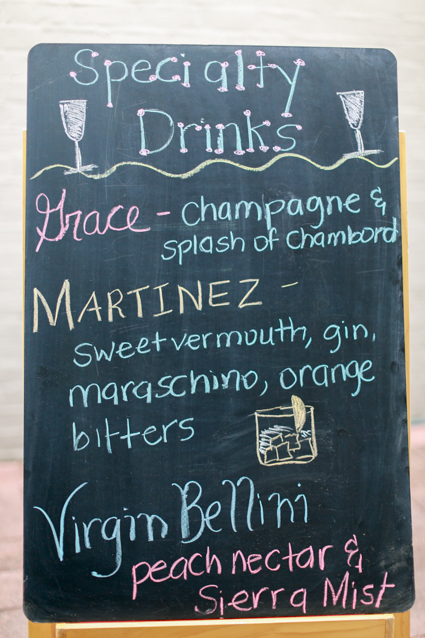 Specialty
Drinks
Grace - Champagne &
splash of Chambord
MARTINEZ -
sweet vermouth, gin,
maraschino, orange
bitters
Virgin Bellini
peach nectar &
Sierra Mist